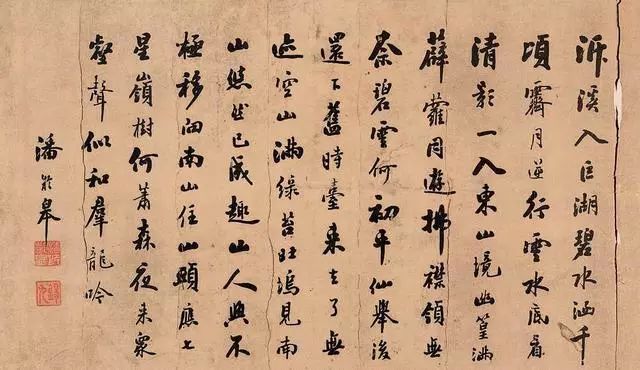 泝溪入巨湖碧水洒千
頃霽月逆行雲水底看
清影一入東山境幽篁滿
薜蘿同遊拂襟領無
奈碧雲何初平仙舉後
還下舊時臺來去了無
迹空山滿綠苔旺塢見南
山悠然已成趣山人興不
極移向南山住山頭應七
星嶺樹何蕭森夜來眾
壑聲似和羣龍吟
潘齡皋